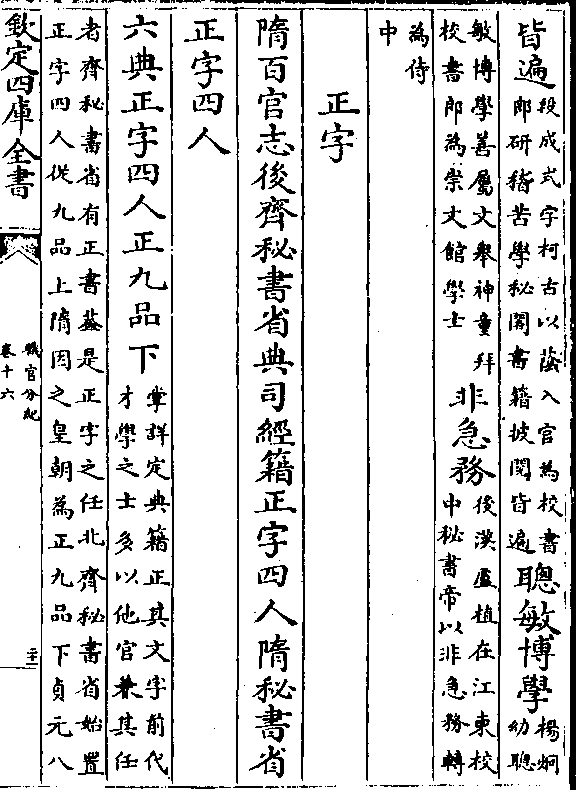 皆遍段成式字柯古以蔭入官為校書
郎研稽苦學秘閣書籍披閱皆遍聰敏博學楊炯
幼聰
敏博學善屬文舉神童拜
校書郎為崇文館學士非急務後漢盧植在江東校
中秘書帝以非急務轉
為侍
中
正字
隋百官志後齊秘書省典司經籍正字四人隋秘書省
正字四人
六典正字四人正九品下掌詳定典籍正其文字前代
才學之士多以他官兼其任
者齊秘書省有正書葢是正字之任北齊秘書省始置
正字四人從九品上隋因之皇朝為正九品下貞元八
欽定四庫全書
職官分紀
卷十六
二十